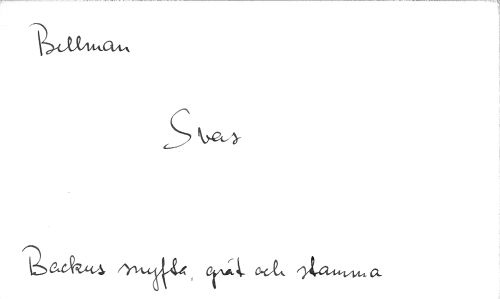 Bellman
Svas
Backus snyfta, gråt och stamma